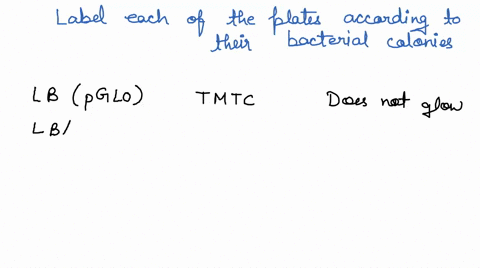 Label each of the plates according to
their bacterial colonies
LB (pGLO) TMTC Does not glow
LB/